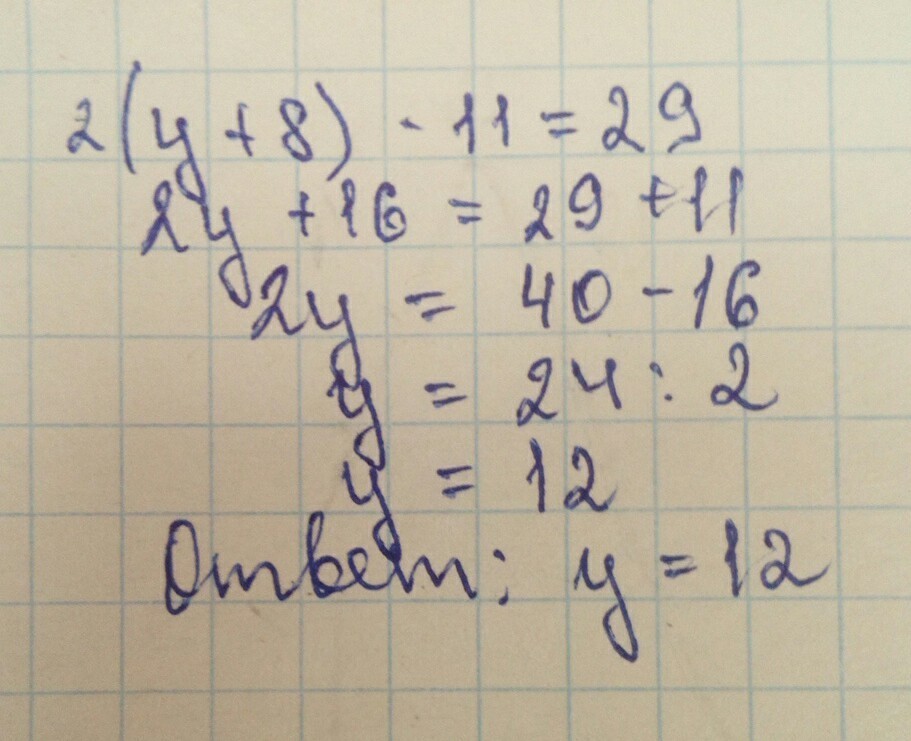 2(y + 8) - 11 = 29
2y + 16 = 29 + 11
2y = 40 - 16
y = 24 : 2
y = 12
Ответ: y = 12